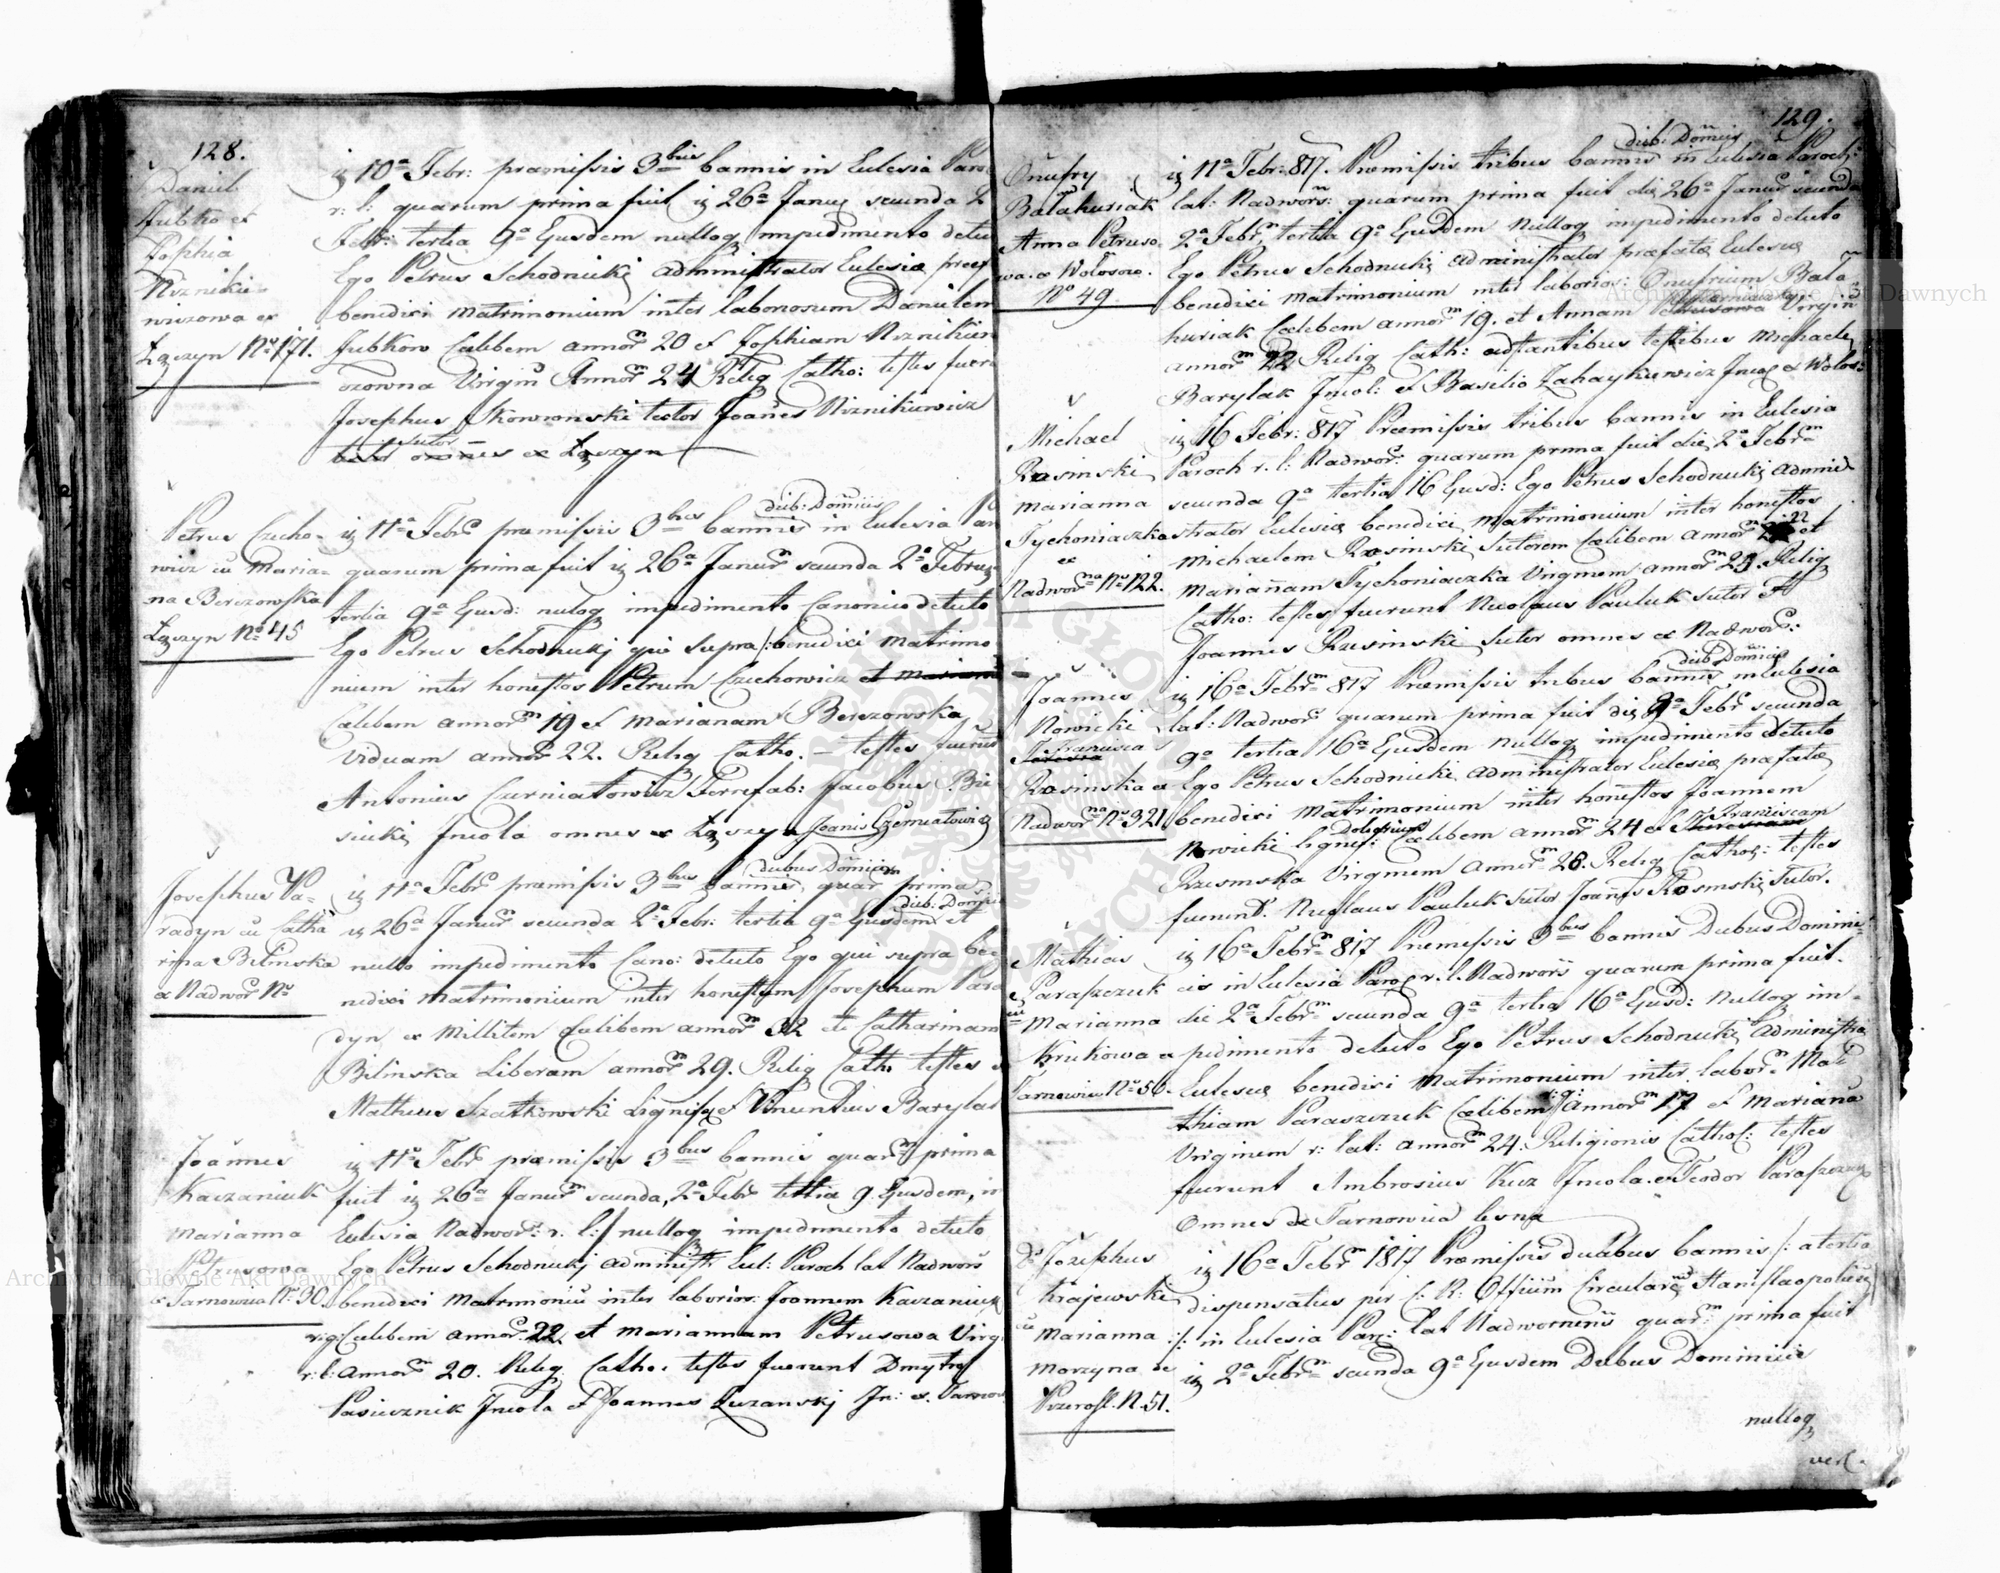 128.
Daniel
Jubko et
Sophia
Niznikie=
wiczowa ex
Łączyn No 171.
ig 10a Febr: præmissis 3bus bannis in Eclesia Paro
r: l: quarum prima fuit ig 26a Janu secunda 2
Febr: tertia 9a Ejusdem nulloq impedimento detec
Ego Petrus Schodnicki Administrator Eclesiæ præf
benedixi matrimonium inter laboriosum Danielem
Jubkow Cælibem annor 20 et Sophiam Niznikiew
iczowna Virgin Annorm 24 Relig Catho: testes fuere
Josephus Skowronski textor Joañes Niznikiewicz
sutor
omnes ex Łączyn
Petrus Czecho-
wicz cu Maria=
na Berezowska
Łączyn No 45
dieb: Domiis
ig 11a Febr præmissis 3bus bannis in Eclesia Par
quarum prima fuit ig 26a Januar secunda 2a Februa
tertia 9a Ejusd: nuloq impedimento Canonico detecto
Ego Petrus Schodnickj qui supra /: benedixi Matrimo
nium inter honestos Petrum Czechowicz et Mariann
Cælibem annorm 19 et Marianam Berezowska
Viduam annor 22. Relig Catho. — testes fuerūt
Antonius Czerniatowicz Ferrifab: Jacobus Bie
siecki Incola omnes ex Łączyn Joanis Czerniatowicz
Josephus Pa=
radyn cu Catha
rina Bilinska
ex Nadwor No
diebus Domīcis
ig 11a Febr præmissis 3bus bannis, quar prima
dieb: Domīi
ig 26a Januar secunda 2a Febr: tertia 9a Ejusdem et
nullo impedimento Cano: detecto Ego qui supra be=
nedixi Matrimonium inter honestum Josephum Para
dyn ex Millitem Cælibem annorm 32 et Catharinam
Bilinska Liberam annor 29. Relig Catho testes
Matheus Szatkowski Lignifx et Vincentius Barylak
Joannes
Kaczaniuk
Marianna
Petrusowa
ex Tarnowica No 30
ig 11a Febr præmissis 3bus bannis quarm prima
fuit ig 26a Januarm secunda, 2a Febr tertia 9 Ejusdem, in
Eclesia Nadwor: r. l:/ nulloq impedimento detecto
Ego Petrus Schodnickj Administr Ecl: Paroch lat Nadwors
benedixi Matrimoniu inter laborios: Joannem Kaczaniuk
r: g: Cælibem annor 22 et Mariannam Petrusowa Virg
r: l: Annorm 20. Relig. Catho. testes fuerunt Dmytro
Pasiecznik Incola et Joannes Łuzanskj In: ex Tarnow
129.
Onufry
Balahuriak
Anna Petruso
wa ex Wołosow.
No 49
dieb: Domīcis
ig 11a Febr: 817. Præmissis tribus bannis in Eclesia Paroch
lat: Nadwors: quarum prima fuit dig 26a Januar secunda
2a Febrm tertia 9a Ejusdem Nulloq impedimento detecto
Ego Petrus Schodnicki Administrator præfatæ Eclesiæ
benedixi Matrimonium inter laborios: Onufrium Bala
huriak Cælibem annorm 19. et Annam Petrusowa Virgin
annorm 22 Relig Cath: adstantibus testibus Michaele
Barylak Incol: et Basilio Zahaykiewicz Inco ex Wołos:
Michael
Rosinski
Marianna
Tychoniaczka
ex
Nadworna No 122.
ig 16 Febr: 817 Præmissis tribus bannis in Eclesia
Paroch r. l: Nadwor: quarum prima fuit die 2a Febrm
secunda 9a tertia 16 Ejusd: Ego Petrus Schodnicki Admini
strator Eclesiæ benedixi Matrimonium inter honestos
Michaelem Rosinski Sutorem Cælibem annorm 22 et
Mariañam Tychoniaczka Virginem annorm 23. Relig
Catho: testes fuerunt Nicolaus Pauluk sutor et
Joannes Rzesinski Sutor omnes ex Nadwor:
Joannes
Nowicki
Francisca
Teresia
Rosinska ex
Nadworna No 321
dieb Domīcis
ig 16a Febrm 817 Præmissis tribus bannis in Eclesia
lat: Nadwor quarum prima fuit dig 2a Febr secunda
9a tertia 16a Ejusdem Nulloq impedimento detecto
Ego Petrus Schodnicki Administrator Eclesiæ præfatæ
benedixi Matrimonium inter honestos Joannem
Franciscam
Nowicki lignif: Cælibem annorm 24 et Theresiam
Rzesinska Virginem Annorm 28. Relig Cathol: testes
fuerunt. Nicolaus Pauluk Sutor Joañes Rosinski Sutor.
Mathias
Paraszczuk
cu
Marianna
Krukowa ex
Tarnowica No 50.
ig 16a Febrm 817 Præmissis 3bus bannis Diebus Domini=
cis in Eclesia Paro r. l. Nadwors quarum prima fuit
die 2a Febrm secunda 9a tertia 16a Ejusd: Nulloq im=
pedimento detecto Ego Petrus Schodnickj Administra
Eclesiæ benedixi Matrimonium inter laborm Mat
thiam Paraszczuk Cælibem r: g: Annorm 17 et Marianā
Virginem r: lat: annorm 24: Religionis Cathol: testes
fuerunt Ambrosius Kuz Incola et Teodor Paraszczuk
Omnes de Tarnowica lesna
Josephus
Krajewski
cu
Marianna
Morzyna de
Przerosl. N. 51.
ig 16a Febrm 1817 Præmissis duabus bannis /: a tertia
dispensatus per C: R: Officium Circulare Stanislaopoliens
:/: in Eclesia Par: lat Nadworniens quarm prima fuit
ig 2a Febrm secunda 9a Ejusdem Diebus Dominicis
nulloq
vert.
Archiwum Główne Akt Dawnych
Archiwum Główne Akt Dawnych